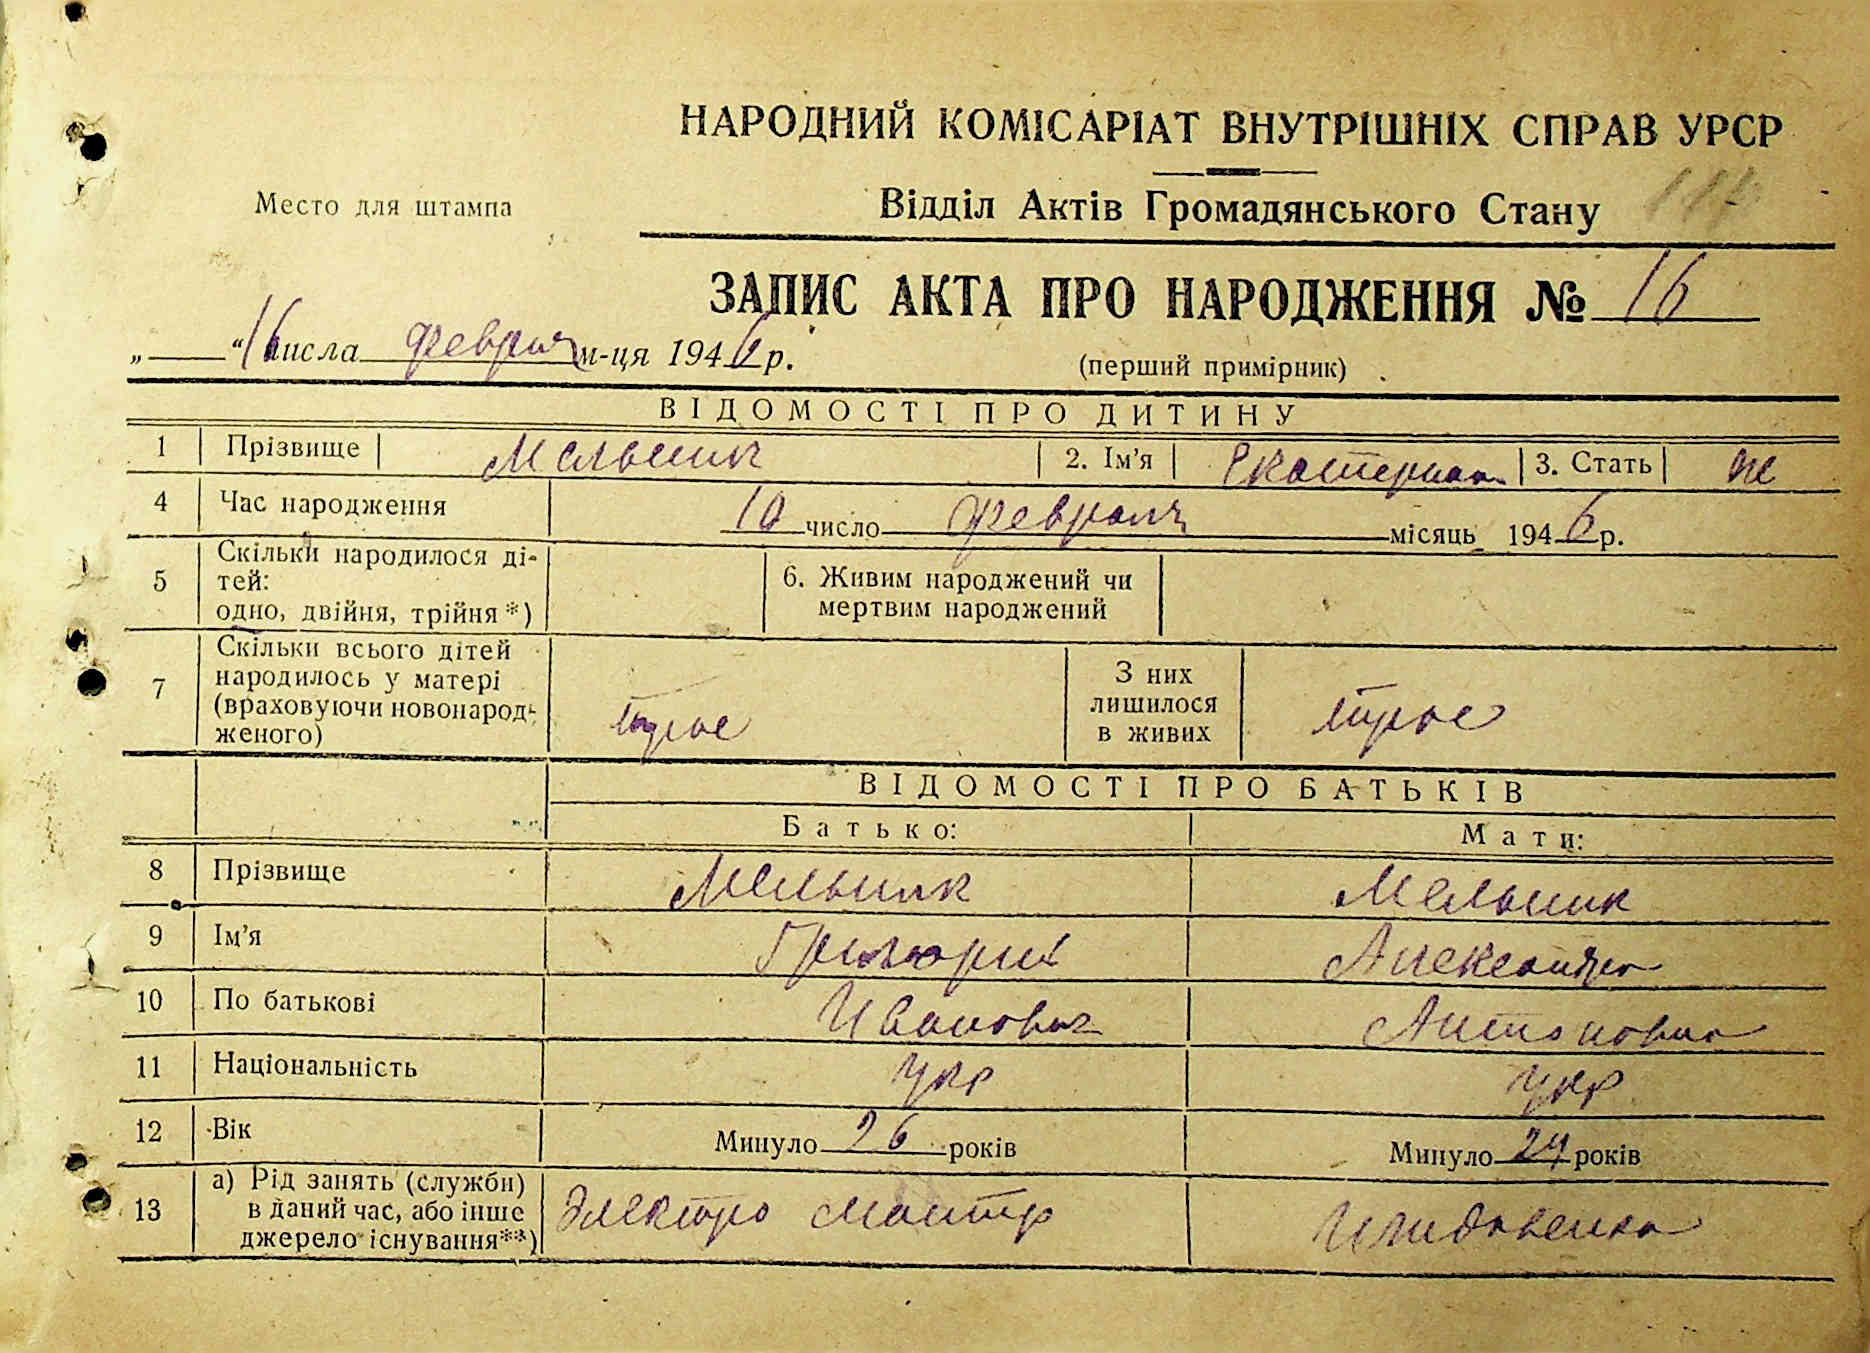 НАРОДНИЙ КОМІСАРІАТ ВНУТРІШНІХ СПРАВ УРСР
Место для штампа
Відділ Актів Громадянського Стану
ЗАПИС АКТА ПРО НАРОДЖЕННЯ № 16
„ “ 16 числа февраля м-ця 1946 р.
(перший примірник)
ВІДОМОСТІ ПРО ДИТИНУ
1 Прізвище Мельник 2. Ім’я Екатерина 3. Стать ж
4 Час народження 10 число февраля місяць 1946 р.
5 Скільки народилося ді-
тей:
одно, двійня, трійня *)
6. Живим народжений чи
мертвим народжений
7 Скільки всього дітей
народилось у матері
(враховуючи новонарод-
женого)
трое
З них
лишилося
в живих
трое
ВІДОМОСТІ ПРО БАТЬКІВ
Батько: Мати:
8 Прізвище Мельник Мельник
9 Ім’я Григорий Александра
10 По батькові Иванович Антоновна
11 Національність укр укр
12 Вік Минуло 26 років Минуло 24 років
13 а) Рід занять (служби)
в даний час, або інше
джерело існування**)
Электро монтр
Иждивенка